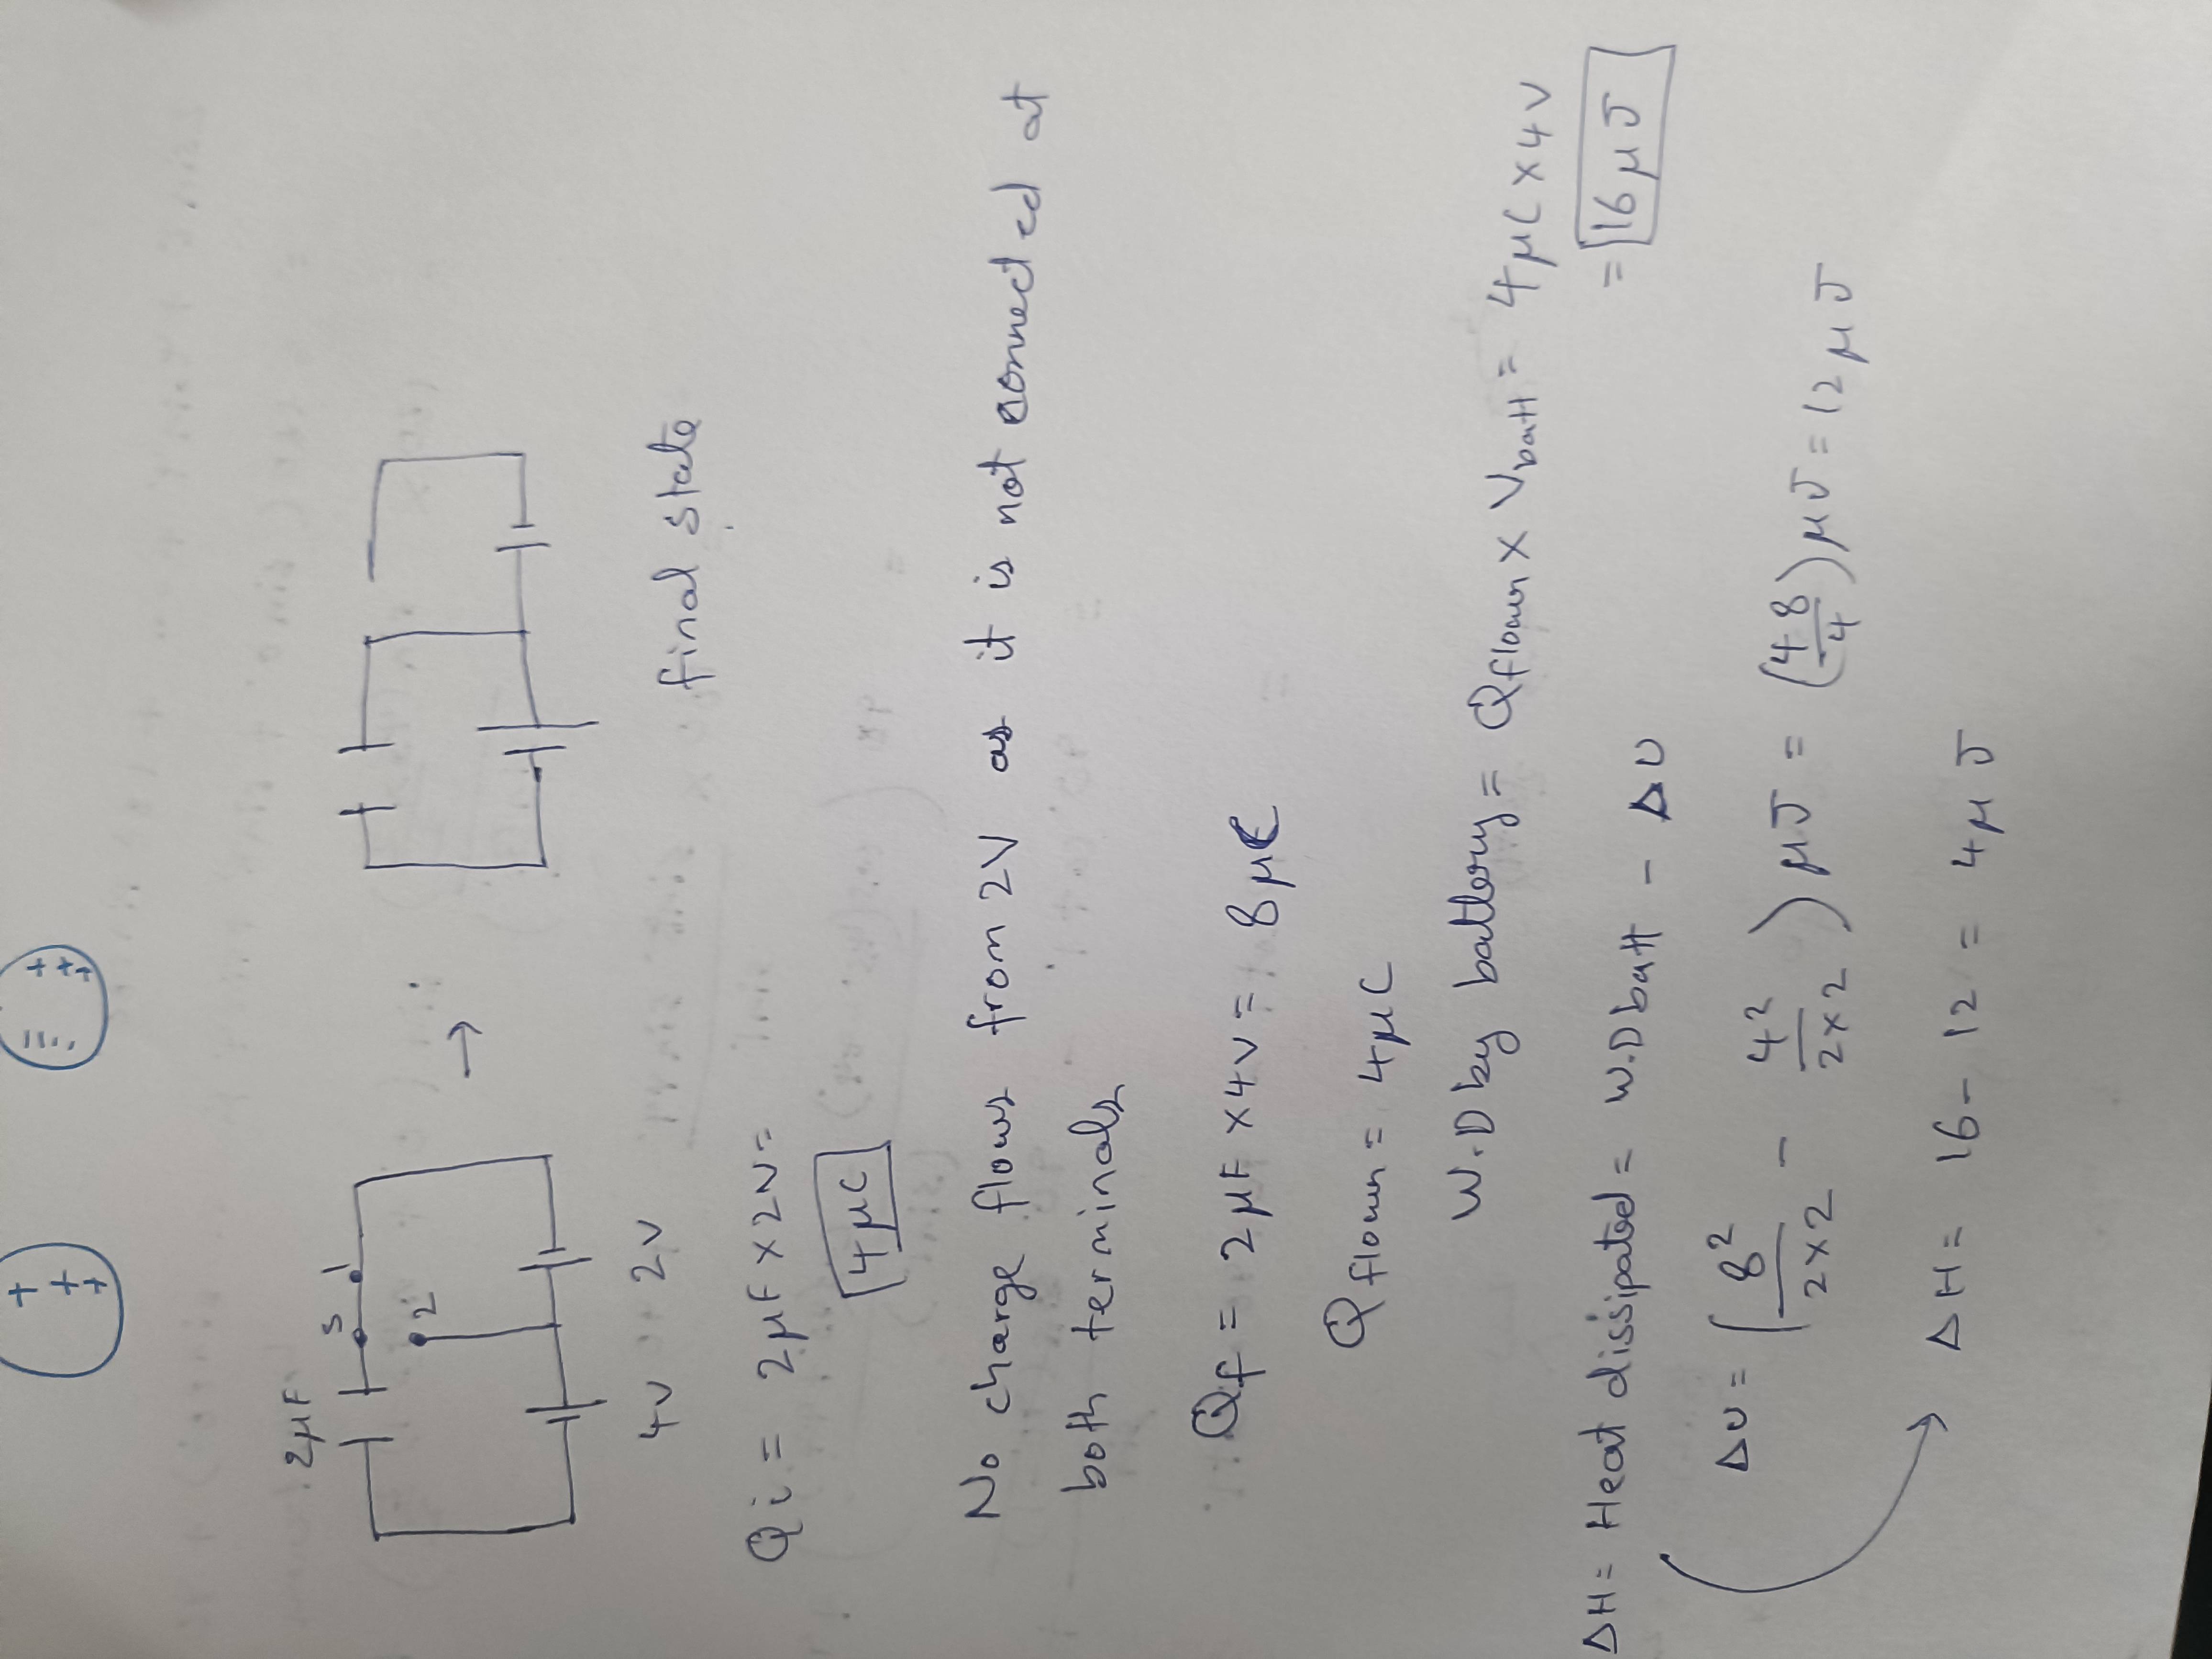 + + +
= - + + +
2μF
S 1
2
→
4V 2V
final state
Qi = 2μF x 2V =
4μC
No charge flows from 2V as it is not connected at
both terminals
Qf = 2μF x 4V = 8μC
Qflown = 4μC
W.D by battery = Qflown x Vbatt = 4μC x 4V
= 16μJ
ΔH = Heat dissipated = W.D batt - ΔU
ΔU = (8²/2x2 - 4²/2x2) μJ = (48/4) μJ = 12μJ
ΔH = 16 - 12 = 4μJ